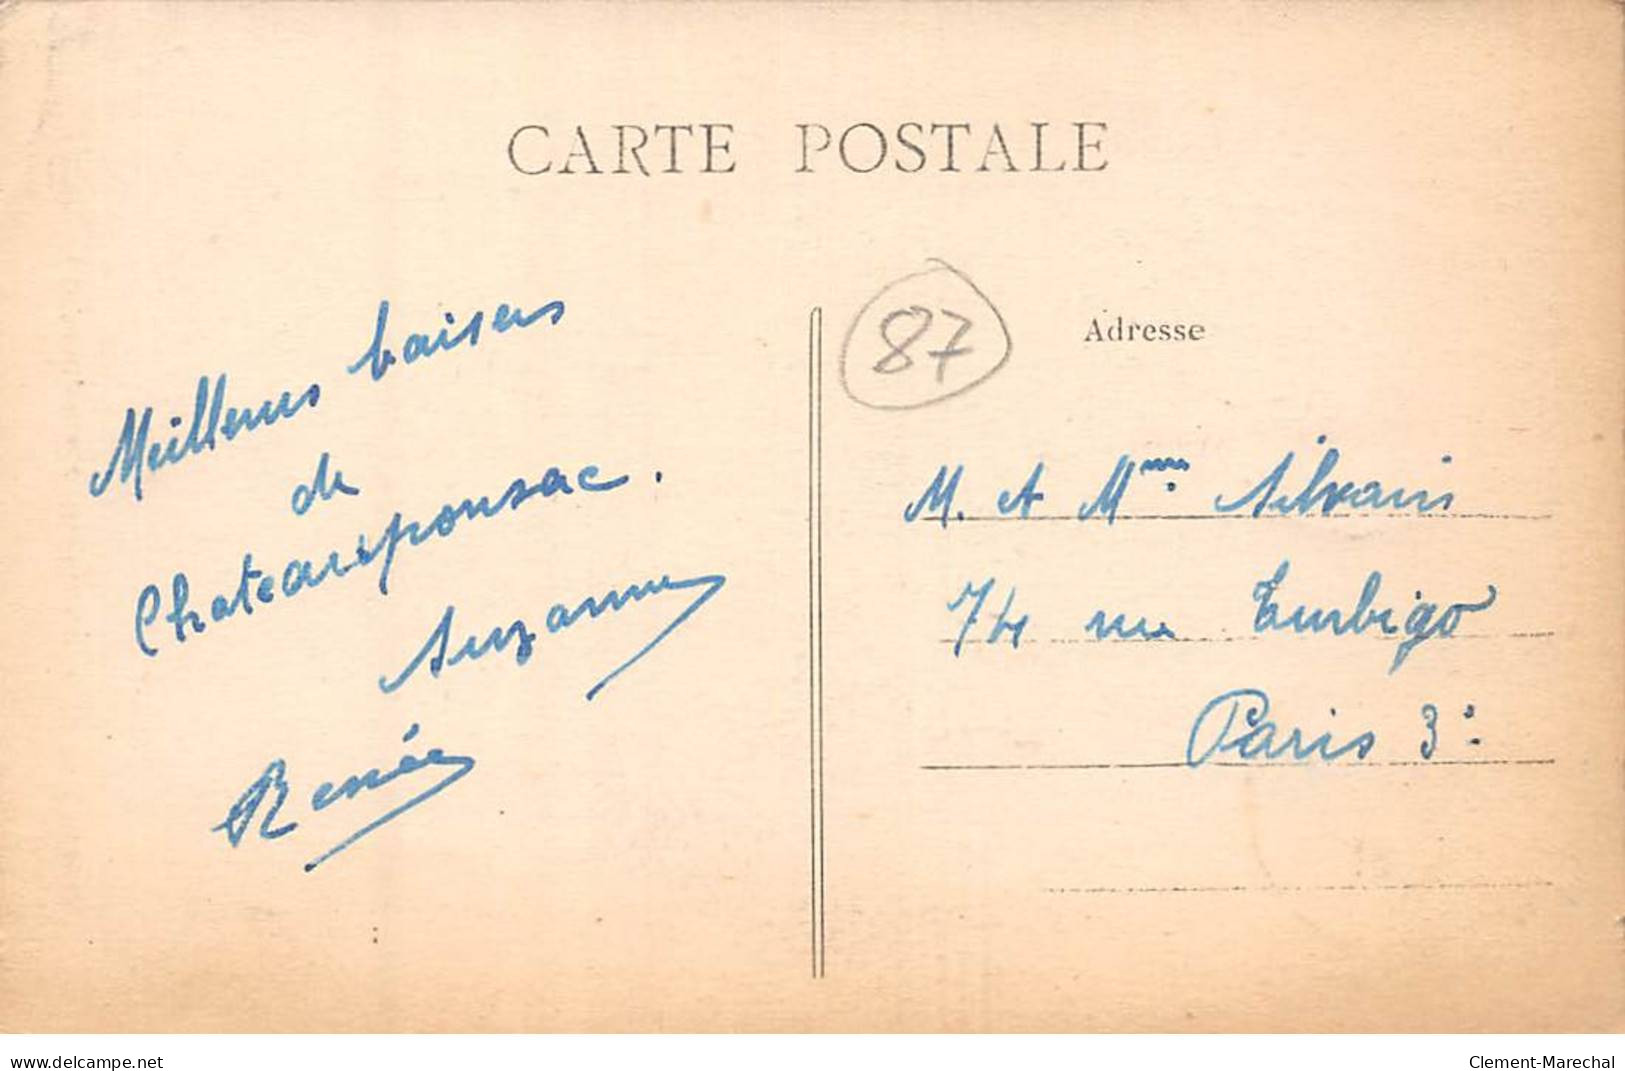 CARTE POSTALE
Meilleurs baisers
de
Chateauponsac.
Suzanne
Renée
87
Adresse
M. et Mme Silvain
74 rue Turbigo
Paris 3e
delcampe.net
Clement-Marechal